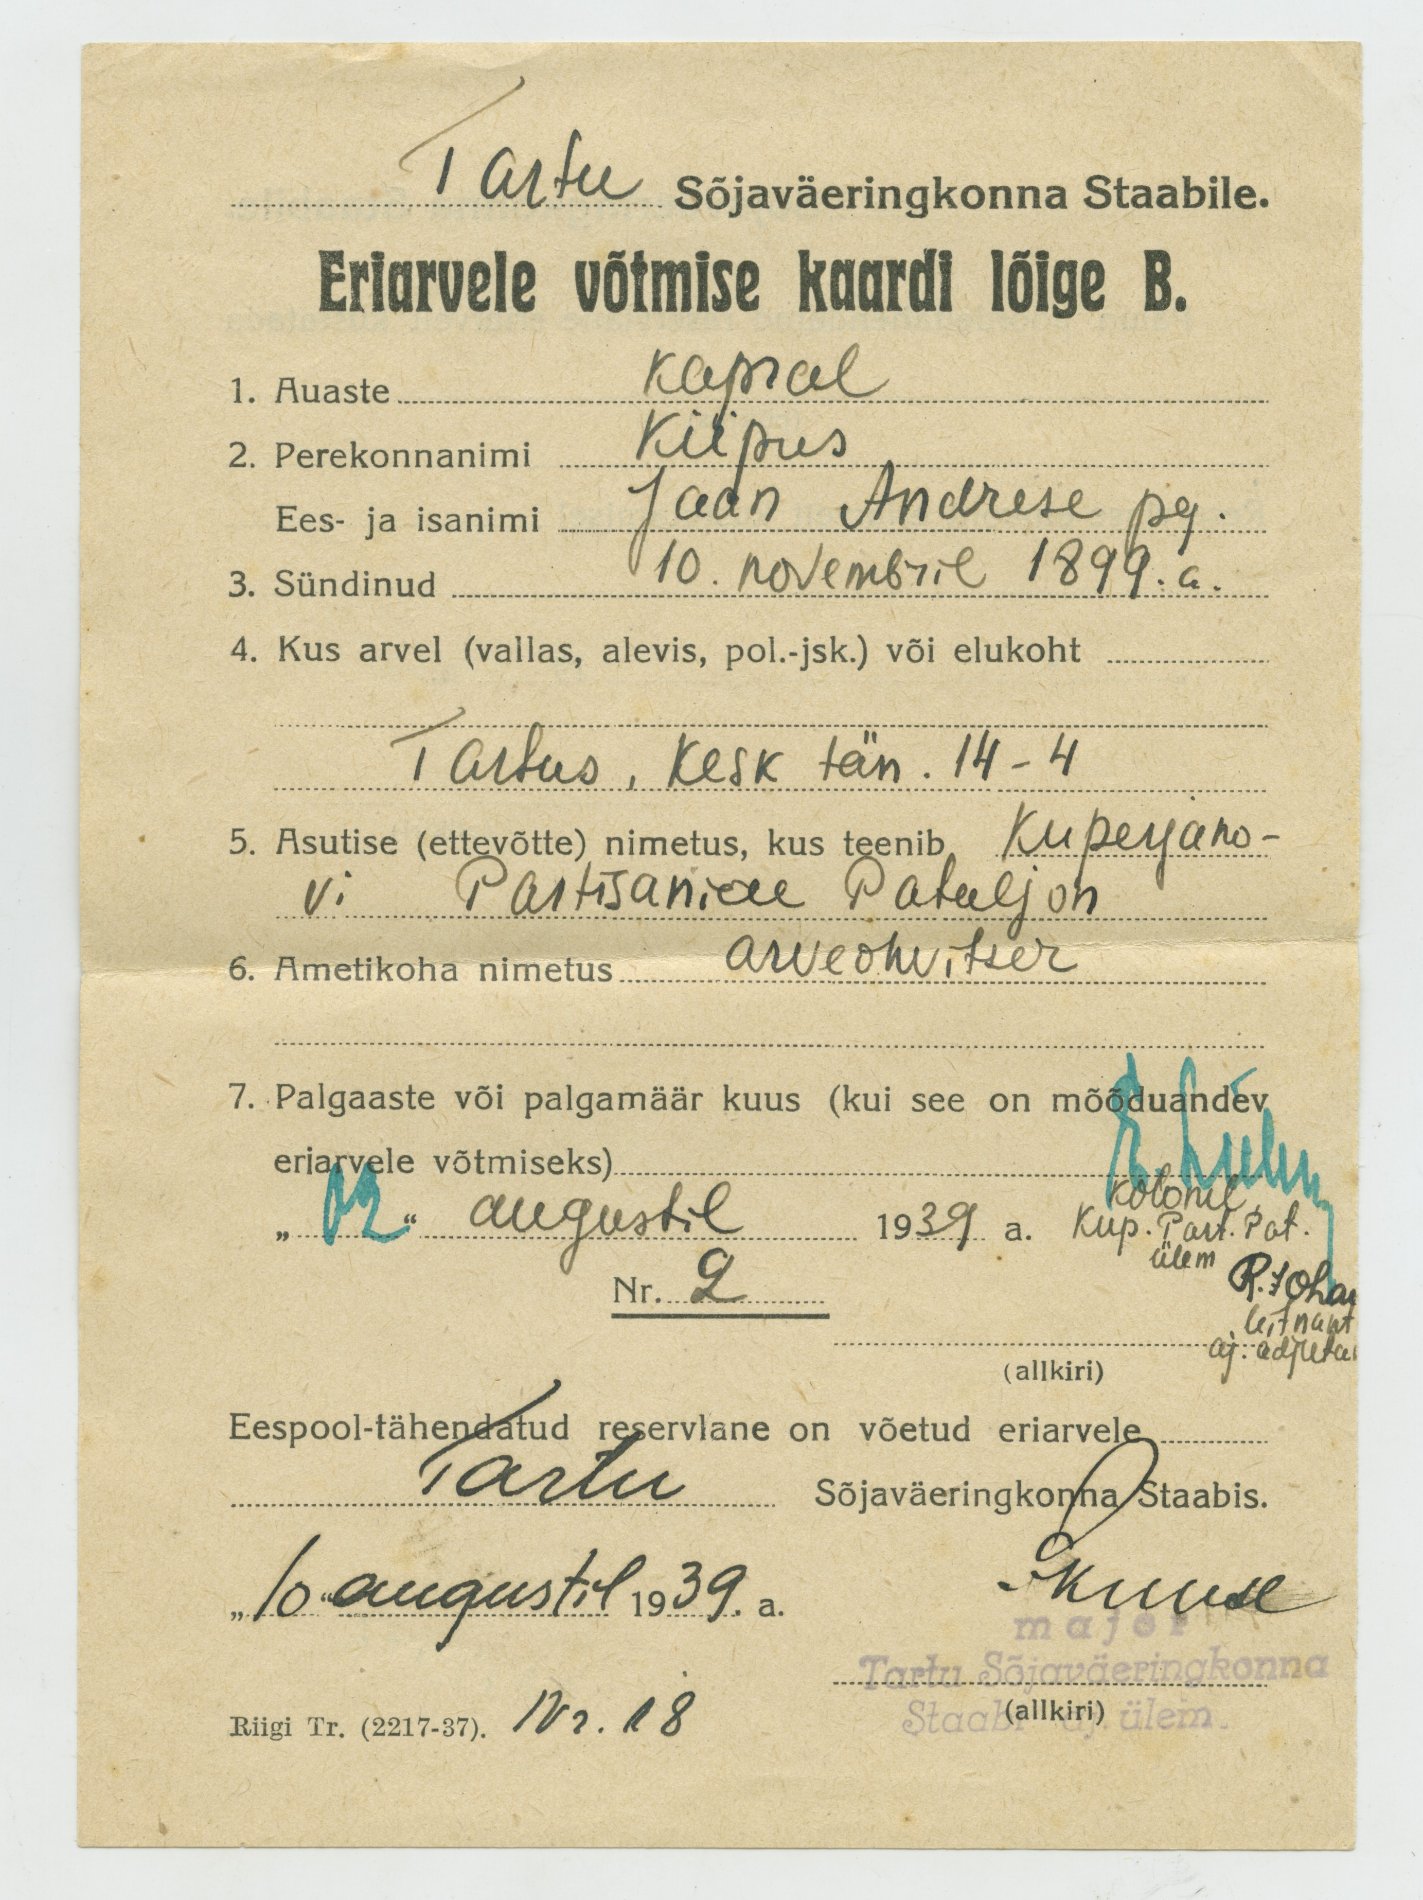 Tartu Sõjaväeringkonna Staabile.
Eriarvele võtmise kaardi lõige B.
1. Auaste kapral
2. Perekonnanimi Kiipus
Ees- ja isanimi Jaan Andrese pg.
3. Sündinud 10. novembril 1899. a.
4. Kus arvel (vallas, alevis, pol.-jsk.) või elukoht
Tartus, Kesk tän. 14-4
5. Asutise (ettevõtte) nimetus, kus teenib Kuperjano-
vi Partisanide Pataljon
6. Ametikoha nimetus arveohvitser
7. Palgaaste või palgamäär kuus (kui see on mõõduandev
eriarvele võtmiseks)
kolonel
„ “ augustil 1939 a. Kup. Part. Pat.
ülem
Nr. 2
R. Johan
leitnant
aj. adjuta
(allkiri)
Eespool-tähendatud reservlane on võetud eriarvele
Tartu Sõjaväeringkonna Staabis.
„10“ augustil 1939. a.
major
Tartu Sõjaväeringkonna
Staabi aj. ülem.
(allkiri)
Riigi Tr. (2217-37). Nr. 18